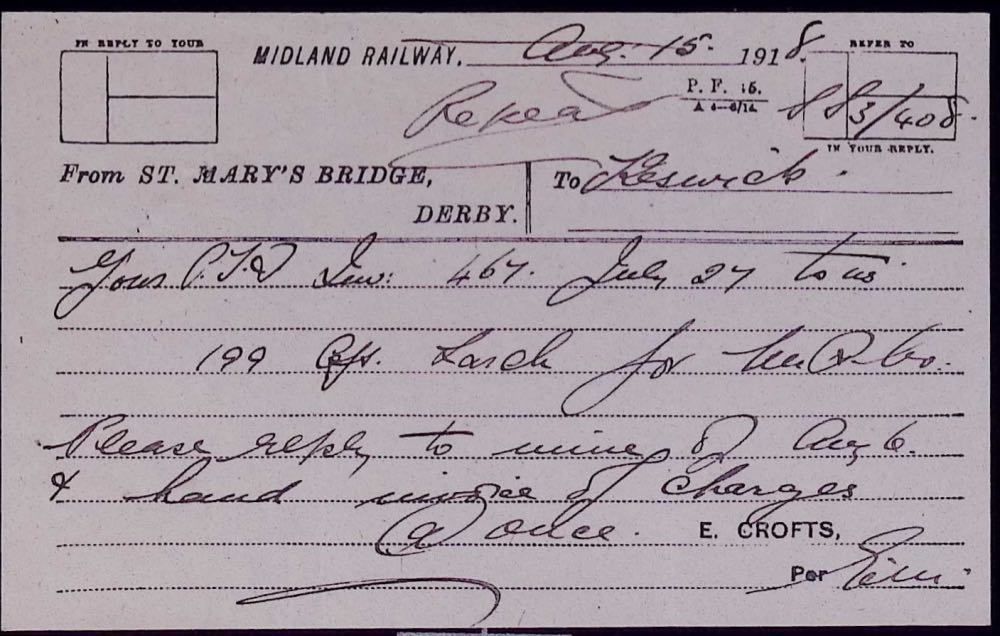 IN REPLY TO YOUR
MIDLAND RAILWAY, Aug. 15. 1918.
REFER TO
P. F. 15.
Repeat
3/408.
IN YOUR REPLY.
From ST. MARY'S BRIDGE,
DERBY.
To Keswick.
Your Inv: 467. July 27 to us
199 Cft. Larch for
Please reply to mine of Aug 6.
& hand invoice of Charges
@ once.
E. CROFTS,
Per